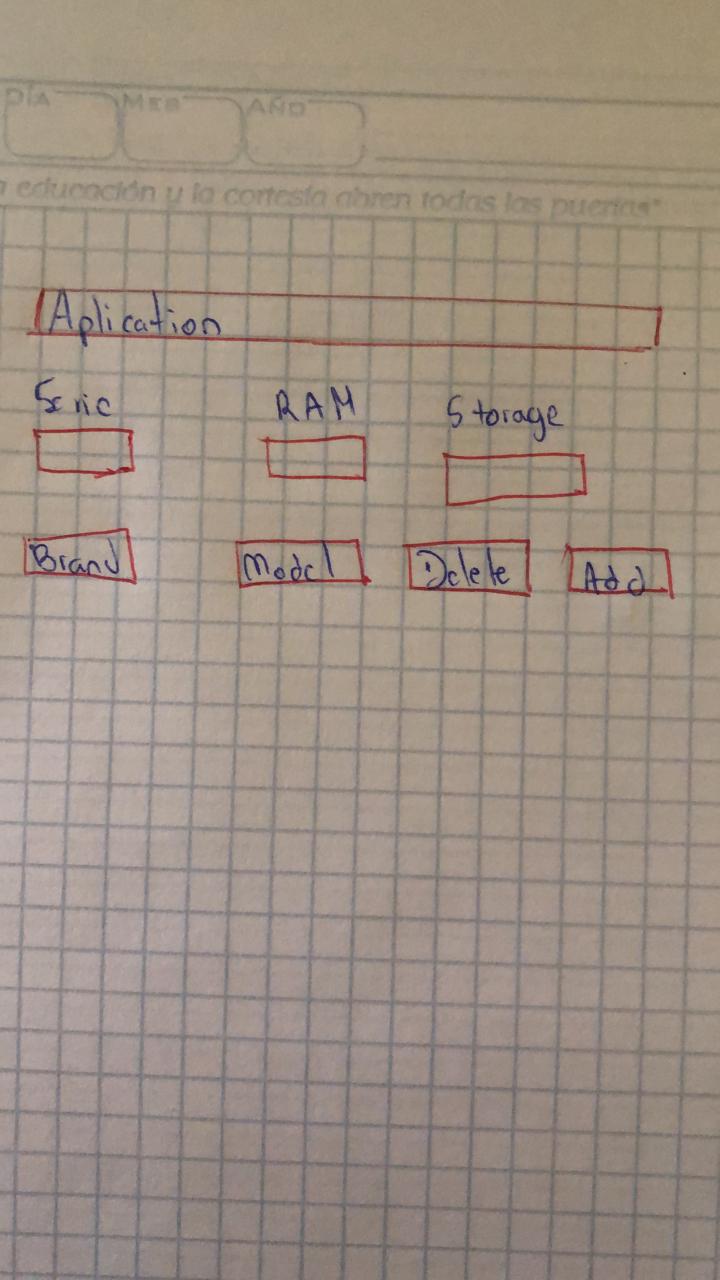 DÍA MES AÑO
educación y la cortesía abren todas las puertas"
Aplication
Seric RAM Storage
Brand Model Delete Add